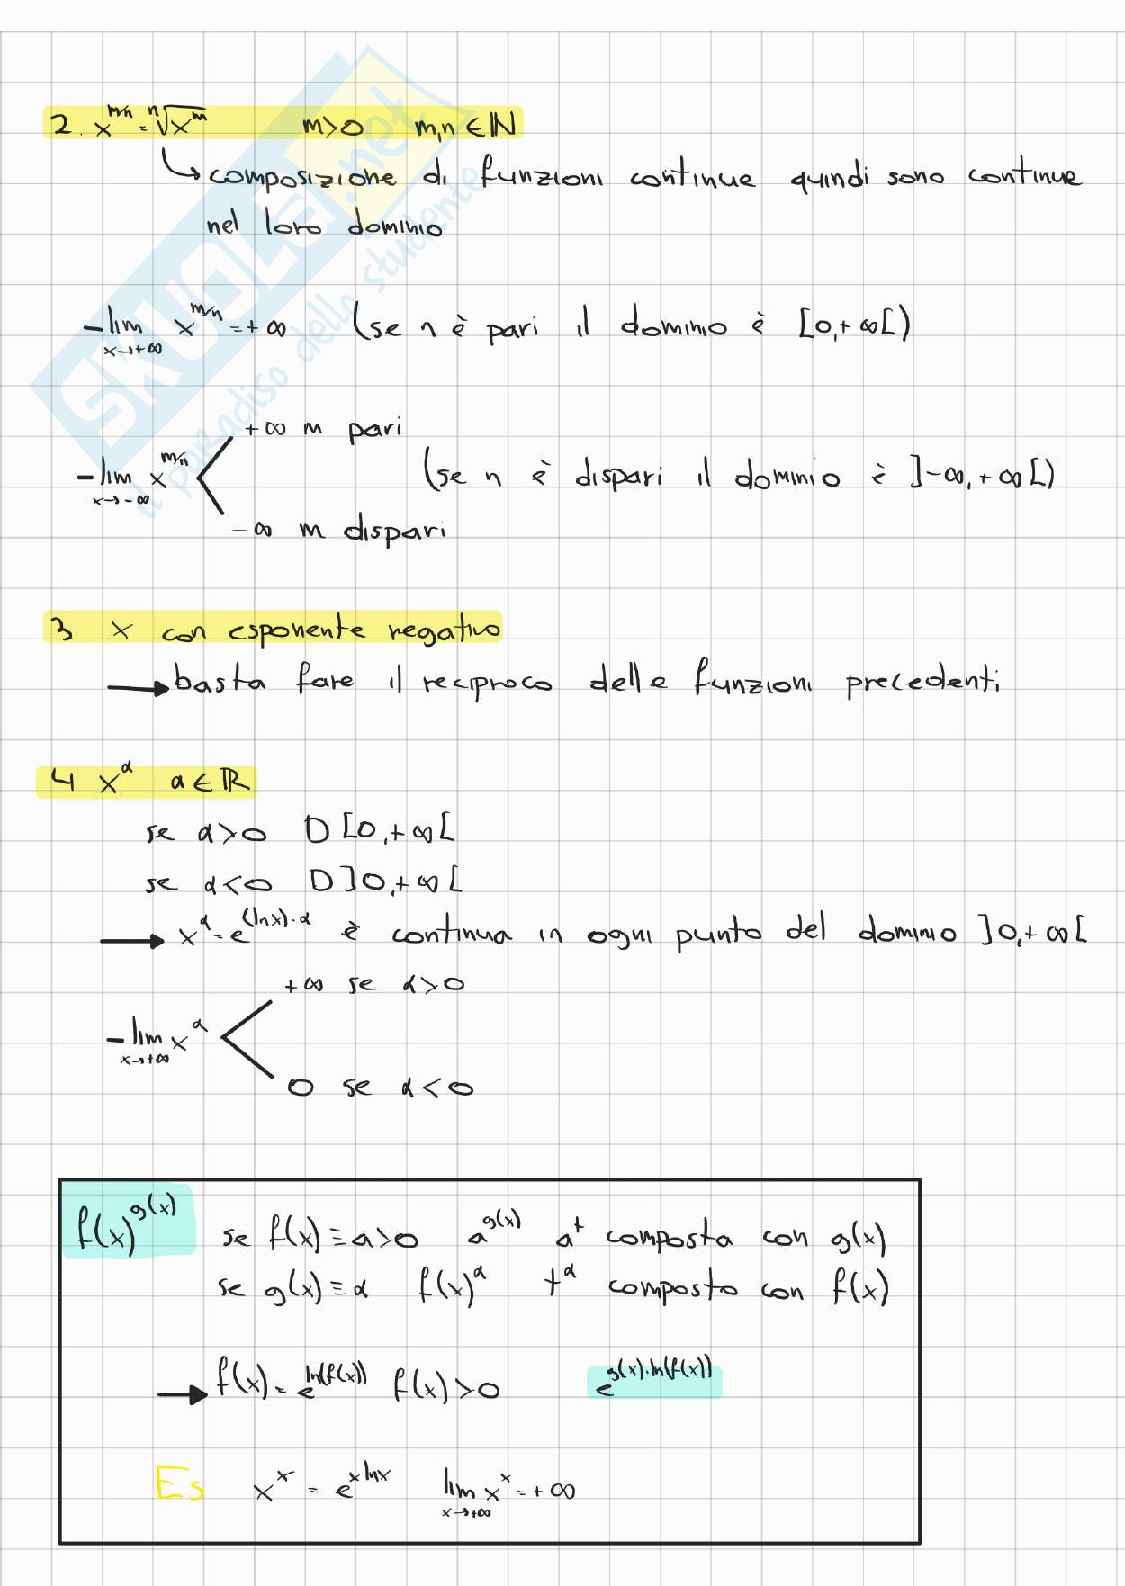 2. x^m/n = ⁿ√x^m m>0 m,n ∈ ℕ
↳ composizione di funzioni continue quindi sono continue
nel loro dominio
- lim x→+∞ x^m/n = +∞ (se n è pari il dominio è [0,+∞[)
+∞ m pari
- lim x→-∞ x^m/n (se n è dispari il dominio è ]-∞,+∞[)
-∞ m dispari
3 x con esponente negativo
→ basta fare il reciproco delle funzioni precedenti
4 x^α α ∈ ℝ
se α>0 D [0,+∞[
se α<0 D ]0,+∞[
→ x^α = e^(lnx)·α è continua in ogni punto del dominio ]0,+∞[
+∞ se α>0
- lim x→+∞ x^α
0 se α<0
f(x)^g(x) se f(x)=a>0 a^g(x) a^t composta con g(x)
se g(x)=α f(x)^α t^α composto con f(x)
→ f(x) = e^ln(f(x)) f(x)>0 e^g(x)·ln(f(x))
Es x^x = e^x lnx lim x→+∞ x^x = +∞
SKUOLA.net
il paradiso dello studente